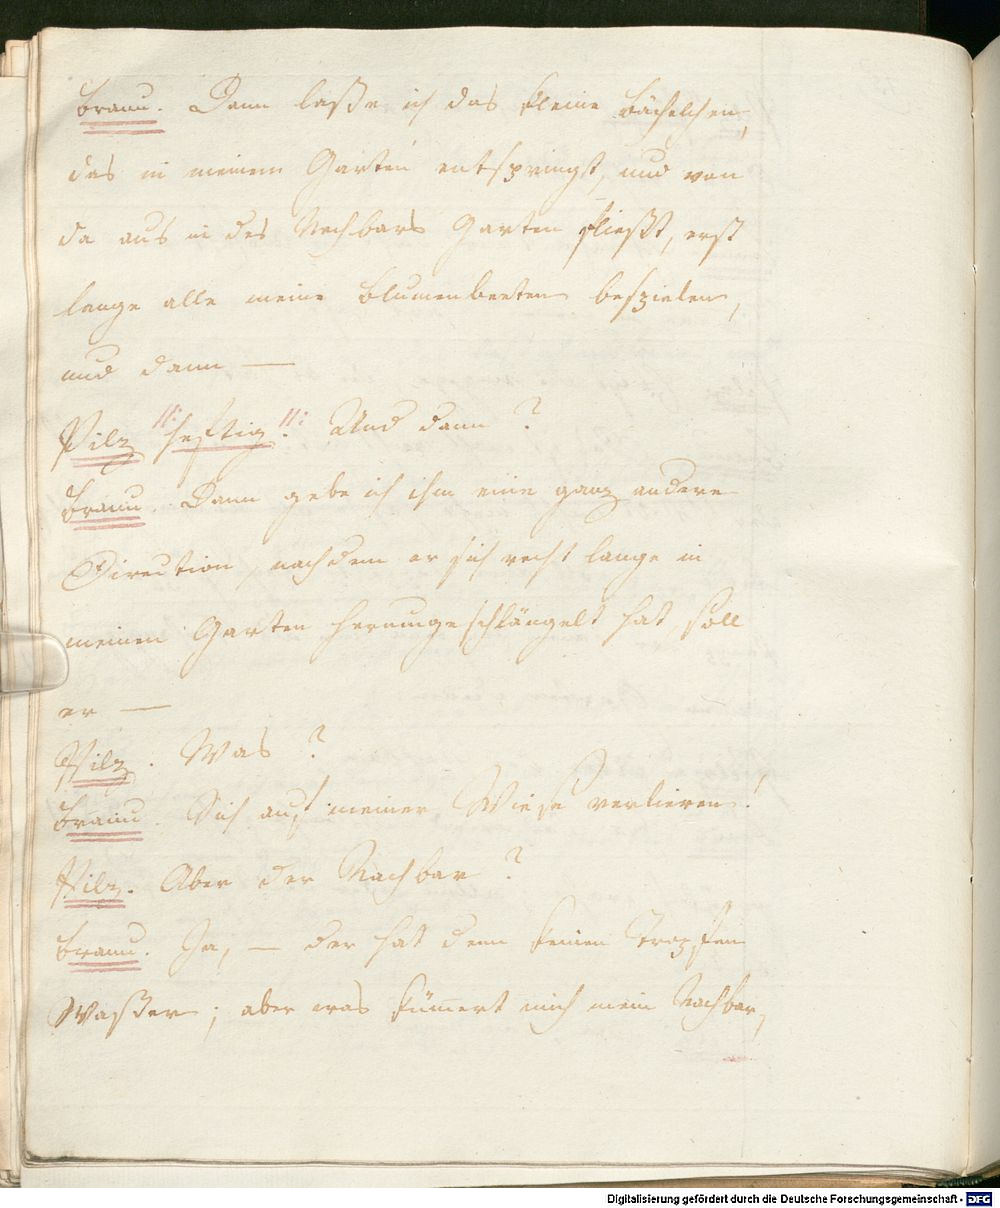 Braun. Dann laße ich das kleine Bächelchen,
das in meinem Garten entspringt, und von
da aus in des Nachbars Garten fließt, erst
lange alle meine Blumenbeeten bespielen,
und dann —
Pilz |: heftig :| Und dann?
Braun. Dann gebe ich ihm eine ganz andere
Direction, nachdem er sich recht lange in
meinen Garten herumgeschlängelt hat, soll
er —
Pilz. Was?
Braun. Sich auf meiner Wiese verlieren!
Pilz. Aber der Nachbar?
Braun. Ja, — der hat denn keinen Tropfen
Waßer; aber was kümert mich mein Nachbar,
Digitalisierung gefördert durch die Deutsche Forschungsgemeinschaft - DFG